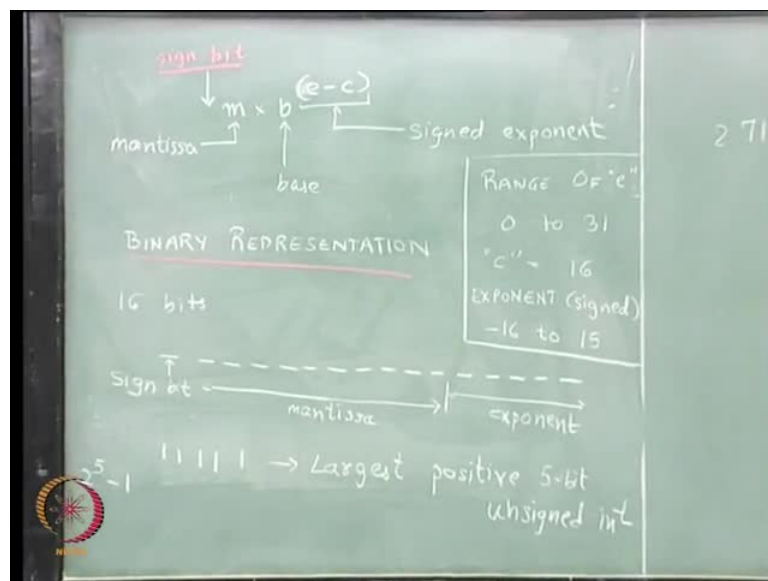 sign bit
m × b (e-c)
mantissa
signed exponent
base
RANGE OF "e"
0 to 31
"c" - 16
EXPONENT (signed)
-16 to 15
BINARY REPRESENTATION
16 bits
Sign bt
mantissa
exponent
2^5-1
11111 → Largest positive 5-bit
unsigned int
2 71